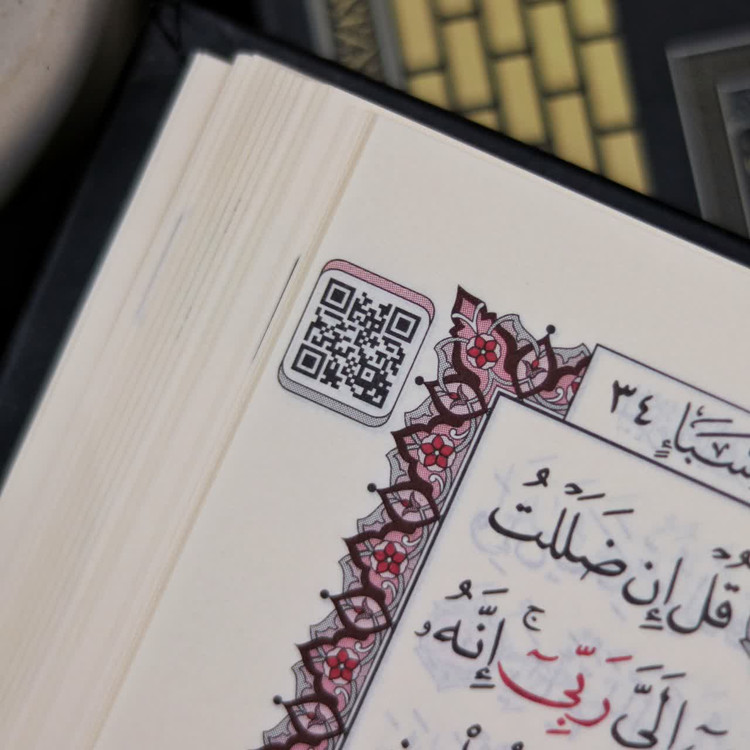 سَبَإٍ ٣٤
قُلْ إِن ضَلَلْتُ
إِلَىَّ رَبِّىٓ ۚ إِنَّهُۥ